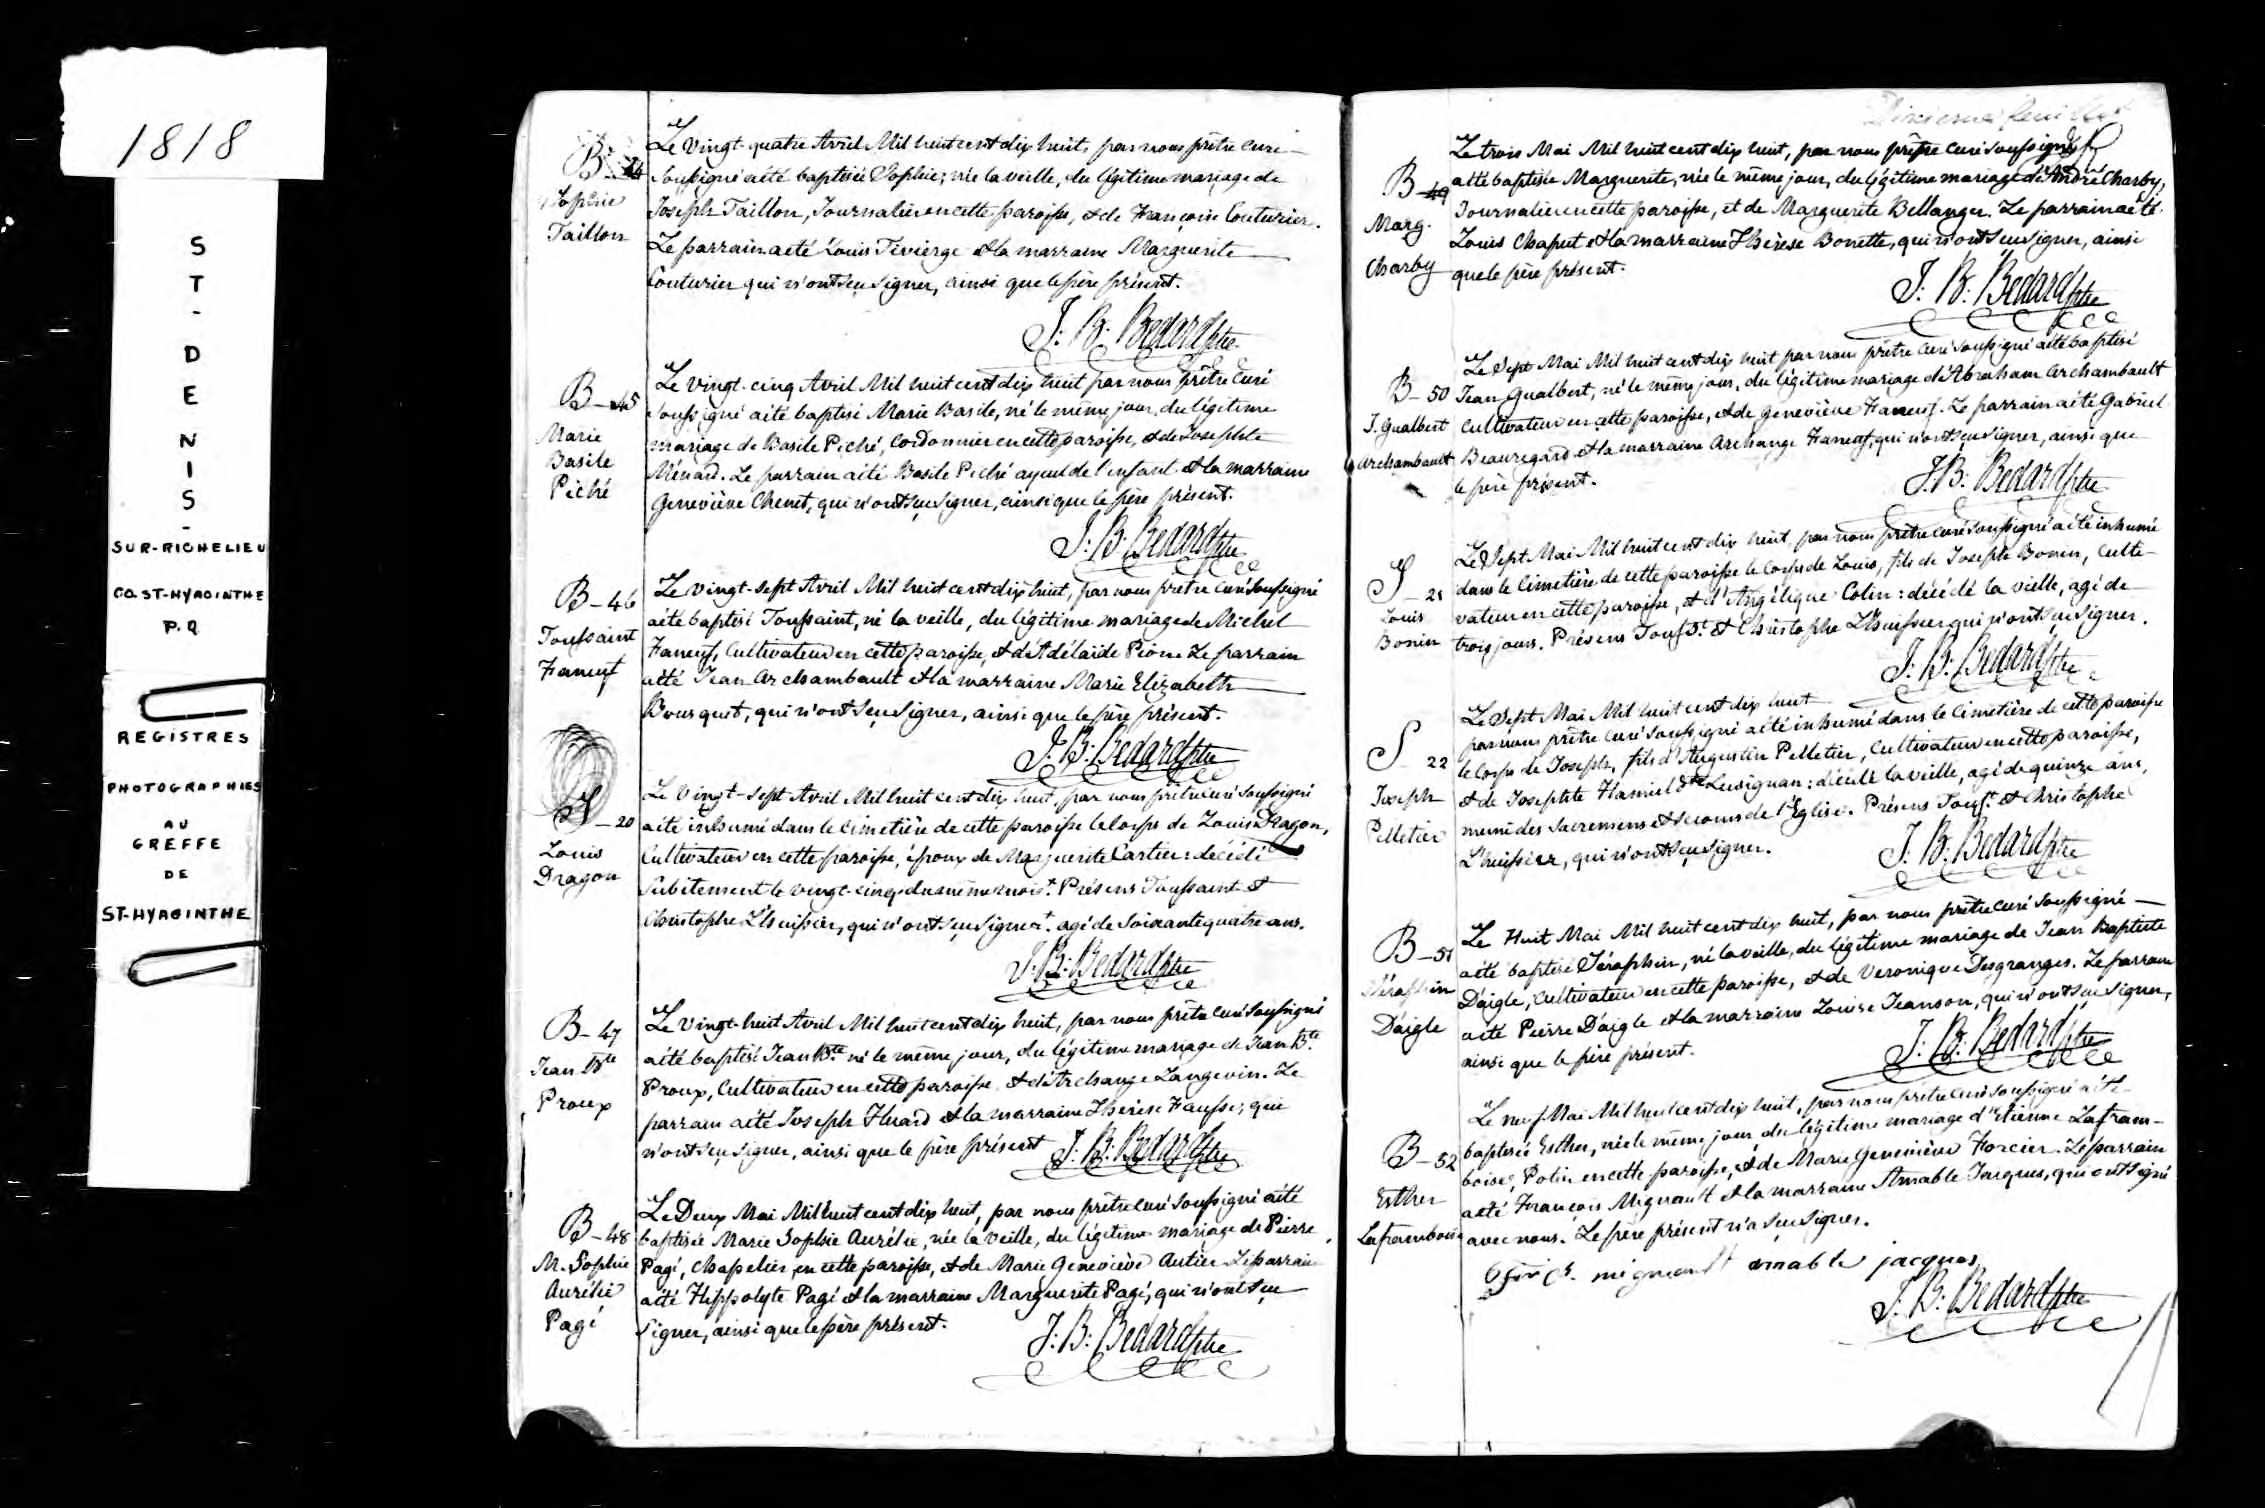 1818
ST-DENIS-
SUR-RICHELIEU
CO. ST-HYACINTHE
P.Q
REGISTRES
PHOTOGRAPHIES
AU
GREFFE
DE
ST-HYACINTHE
B 44
Sophie
Taillon
Le Vingt-quatre Avril Mil huit cent dix huit, par nous prêtre Curé
Soussigné a été baptisée Sophie; née la veille, du légitime mariage de
Joseph Taillon, Journalier en cette paroisse, & de Françoise Couturier.
Le parrain a été Louis Tivierge & la marraine Marguerite
Couturier qui n'ont sçu signer, ainsi que le père présent.
J: B: Bedard ptre
B-45
Marie
Basile
Piché
Le Vingt-cinq Avril Mil huit cent dix huit par nous prêtre Curé
soussigné a été baptisé Marie Basile, né le même jour, du légitime
mariage de Basile Piché, Cordonnier en cette paroisse, & de Josephte
Ménard. Le parrain a été Basile Piché ayeul de l'enfant & la marraine
Geneviève Chenet, qui n'ont sçu signer, ainsi que le père présent.
J: B: Bedard ptre
B-46
Toussaint
Faneuf
Le Vingt-sept Avril Mil huit cent dix huit, par nous prêtre Curé Soussigné
a été baptisé Toussaint, né la veille, du légitime mariage de Michel
Faneuf, Cultivateur en cette paroisse, & d'Adélaide Pion. Le parrain
a été Jean Archambault & la marraine Marie Elizabeth
Bousquet, qui n'ont sçu signer, ainsi que le père présent.
J: B: Bedard ptre
S-20
Louis
Dragon
Le Vingt-Sept Avril Mil huit cent dix huit, par nous prêtre Curé Soussigné
a été inhumé dans le Cimetière de cette paroisse le Corps de Louis Dragon,
Cultivateur en cette paroisse, époux de Marguerite Cartier: décédé
Subitement le vingt-cinq du même mois. Présens Toussaint &
Christophe L'huissier, qui n'ont sçu signer. + agé de Soixante quatre ans.
J: B: Bedard ptre
B-47
Jean Bte
Proux
Le Vingt-huit Avril Mil huit cent dix huit, par nous prêtre Curé Soussigné
a été baptisé Jean Bte né le même jour, du légitime mariage de Jean Bte
Proux, Cultivateur en cette paroisse & d'Archange Langevin. Le
parrain a été Joseph Huard & la marraine Thérèse Fausse; qui
n'ont sçu signer, ainsi que le père présent J: B: Bedard ptre
B-48
M. Sophie
Aurélie
Pagé
Le Deux Mai Mil huit cent dix huit, par nous prêtre Curé Soussigné a été
baptisée Marie Sophie Aurélie, née la veille, du légitime mariage de Pierre
Pagé, Chapelier en cette paroisse, & de Marie Geneviève Autier. Le parrain
a été Hippolyte Pagé & la marraine Marguerite Pagé, qui n'ont sçu
signer, ainsi que le père présent.
J: B: Bedard ptre
B 49
Marg.
Charby
Le trois Mai Mil huit cent dix huit, par nous prêtre curé soussigné
a été baptisée Marguerite, née le même jour, du légitime mariage d'André Charby,
Journalier en cette paroisse, et de Marguerite Bellanger. Le parrain a été
Louis Chaput & la marraine Thérèse Bonette, qui n'ont sçu signer, ainsi
que le père présent.
J: B: Bedard ptre
B-50
J. Gualbert
Archambault
Le Sept Mai Mil huit cent dix huit par nous prêtre Curé soussigné a été baptisé
Jean Gualbert, né le même jour, du légitime mariage d'Abraham Archambault
Cultivateur en cette paroisse, & de Geneviève Faneuf. Le parrain a été Gabriel
Beauregard & la marraine Archange Faneuf, qui n'ont sçu signer, ainsi que
le père présent.
J: B: Bedard ptre
S-21
Louis
Bonin
Le Sept Mai Mil huit cent dix huit, par nous prêtre curé soussigné a été inhumé
dans le Cimetière de cette paroisse le Corps de Louis, fils de Joseph Bonin, Culti-
vateur en cette paroisse, & d'Angélique Colin: décédé la vielle, agé de
trois jours. Présens Toust. & Christophe L'huissier qui n'ont sçu signer.
J: B: Bedard ptre
S 22
Joseph
Pelletier
Le Sept Mai Mil huit cent dix huit
par nous prêtre curé soussigné a été inhumé dans le Cimetière de cette paroisse
le Corps de Joseph, fils d'Augustin Pelletier, Cultivateur en cette paroisse,
& de Josephte Hamel dte Lusignan: décédé la veille, agé de quinze ans,
muni des Sacremens & secours de l'Eglise. Présens Toust. & Christophe
L'huissier, qui n'ont sçu signer.
J: B: Bedard ptre
B-51
Séraphin
Daigle
Le Huit Mai Mil huit cent dix huit, par nous prêtre curé soussigné
a été baptisé Séraphin, né la veille, du légitime mariage de Jean Baptiste
Daigle, Cultivateur en cette paroisse, & de Veronique Desgranges. Le parrain
a été Pierre Daigle & la marraine Louise Jeanson, qui n'ont sçu signer,
ainsi que le père présent.
J: B: Bedard ptre
B-52
Esther
Laframboise
Le neuf Mai Mil huit cent dix huit, par nous prêtre curé soussigné a été
baptisée Esther, née le même jour, du légitime mariage d'Etienne Lafram-
boise, Potier en cette paroisse, & de Marie Geneviève Forcier. Le parrain
a été François Mignault & la marraine Amable Jacques, qui ont signé
avec nous. Le père présent n'a sçu signer.
mignault amable jacques
J: B: Bedard ptre